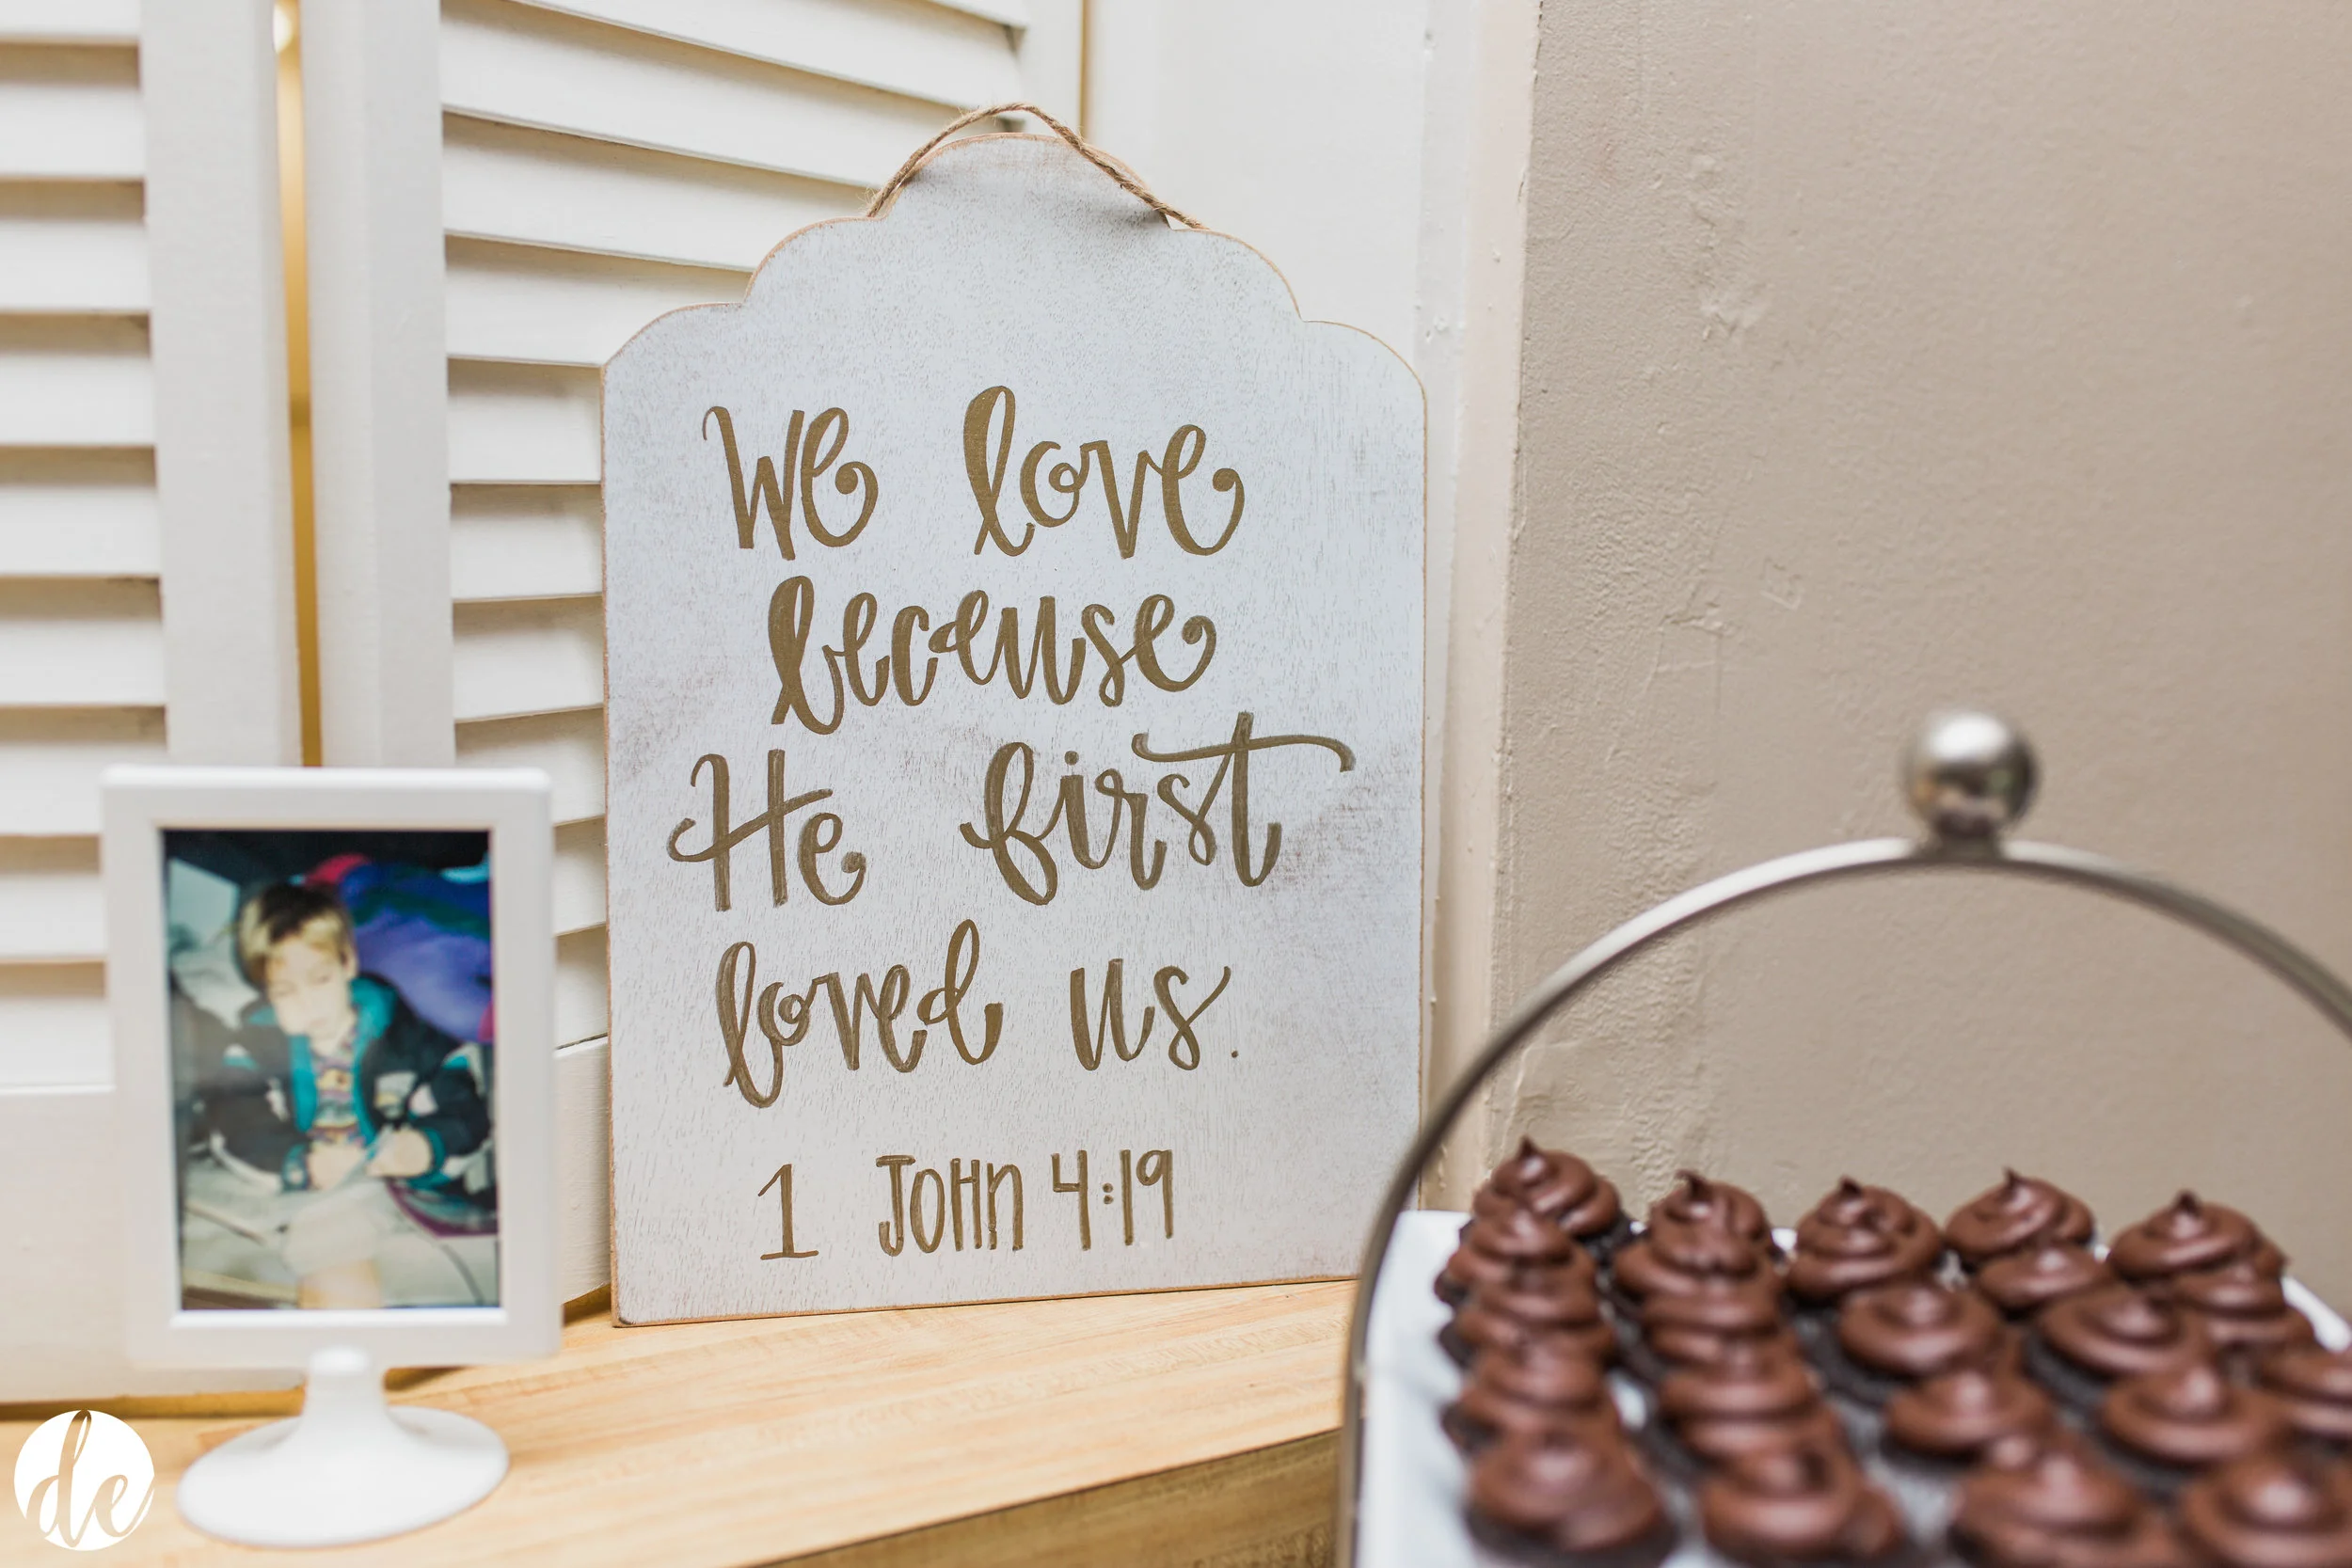 We love
because
He first
loved us.
1 John 4:19
de